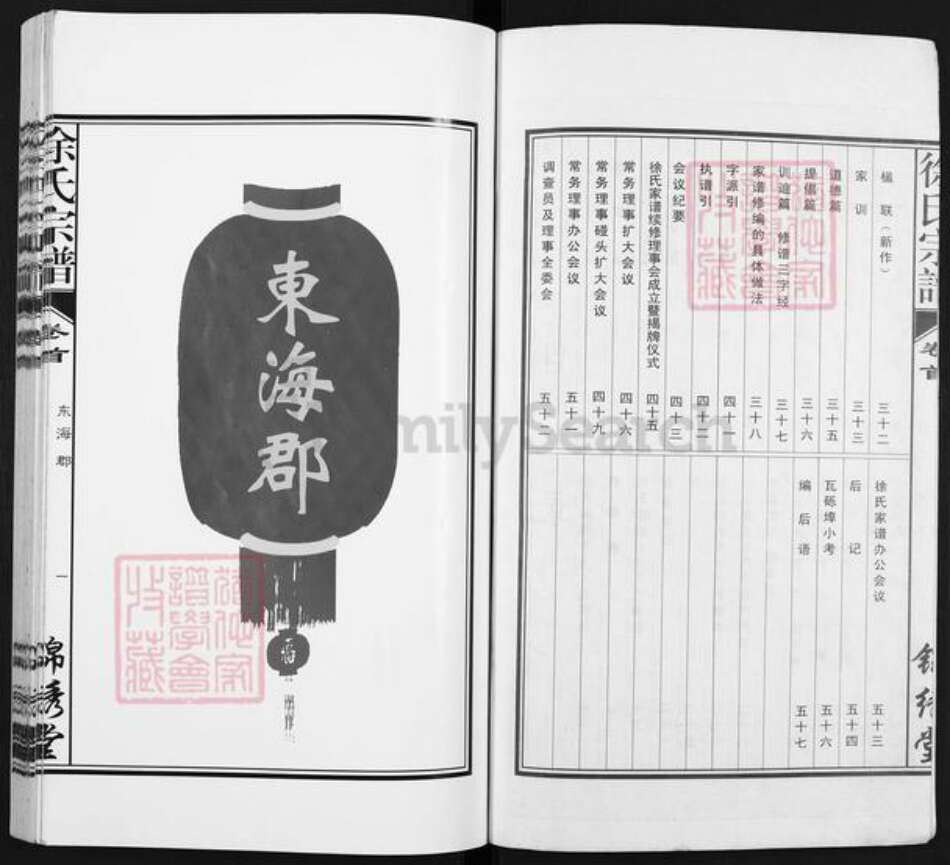 徐氏宗譜
卷首
楹联（新作） 三十二
家训 三十三
道德篇 三十五
提倡篇 三十六
训迪篇 修谱三字经 三十七
家谱修编的具体做法 三十八
字派引 四十一
执谱引 四十二
会议纪要 四十三
徐氏家谱续修理事会成立暨揭牌仪式 四十五
常务理事扩大会议 四十六
常务理事碰头扩大会议 四十九
常务理事办公会议 五十一
调查员及理事全委会 五十二
徐氏家谱办公会议 五十三
后记 五十四
瓦砾埠小考 五十六
编后语 五十七
錦绣堂
東海郡
福
徐氏宗譜
卷首
东海郡
一
錦绣堂
譜學會
收藏
FamilySearch